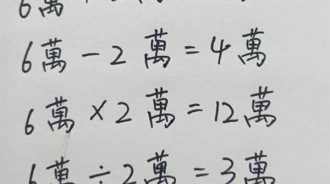 6萬－2萬＝4萬
6萬×2萬＝12萬
6萬÷2萬＝3萬